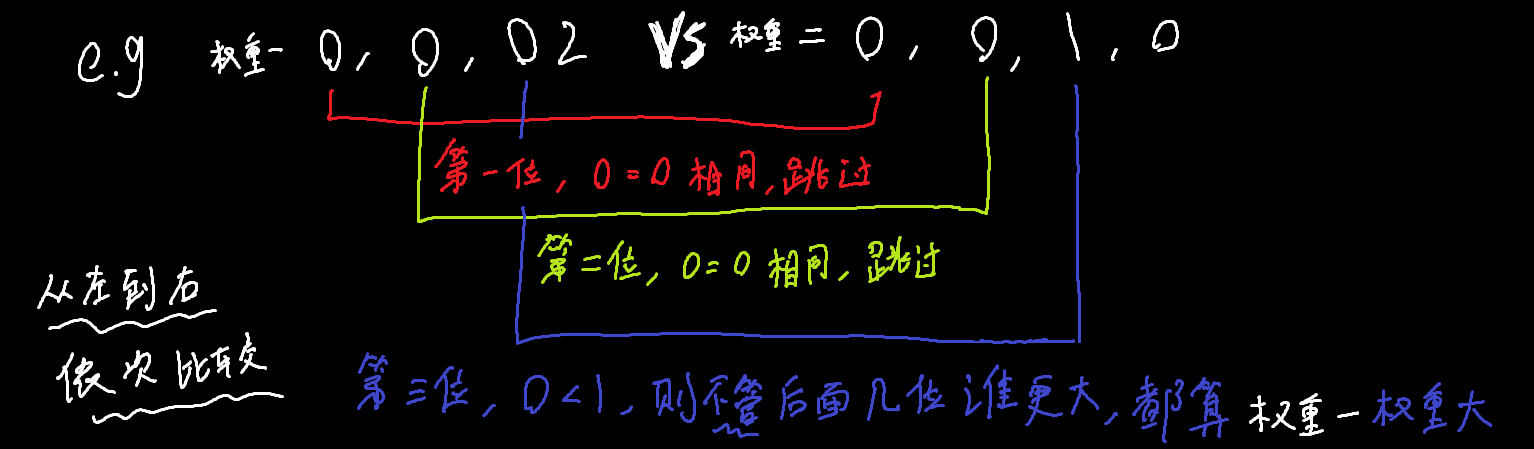 e.g 权重一 0, 0, 0 2 VS 权重二 0, 0, 1, 0
第一位, 0=0 相同, 跳过
第二位, 0=0 相同, 跳过
从左到右
依次比较
第三位, 0<1, 则不管后面几位谁更大, 都算 权重一权重大